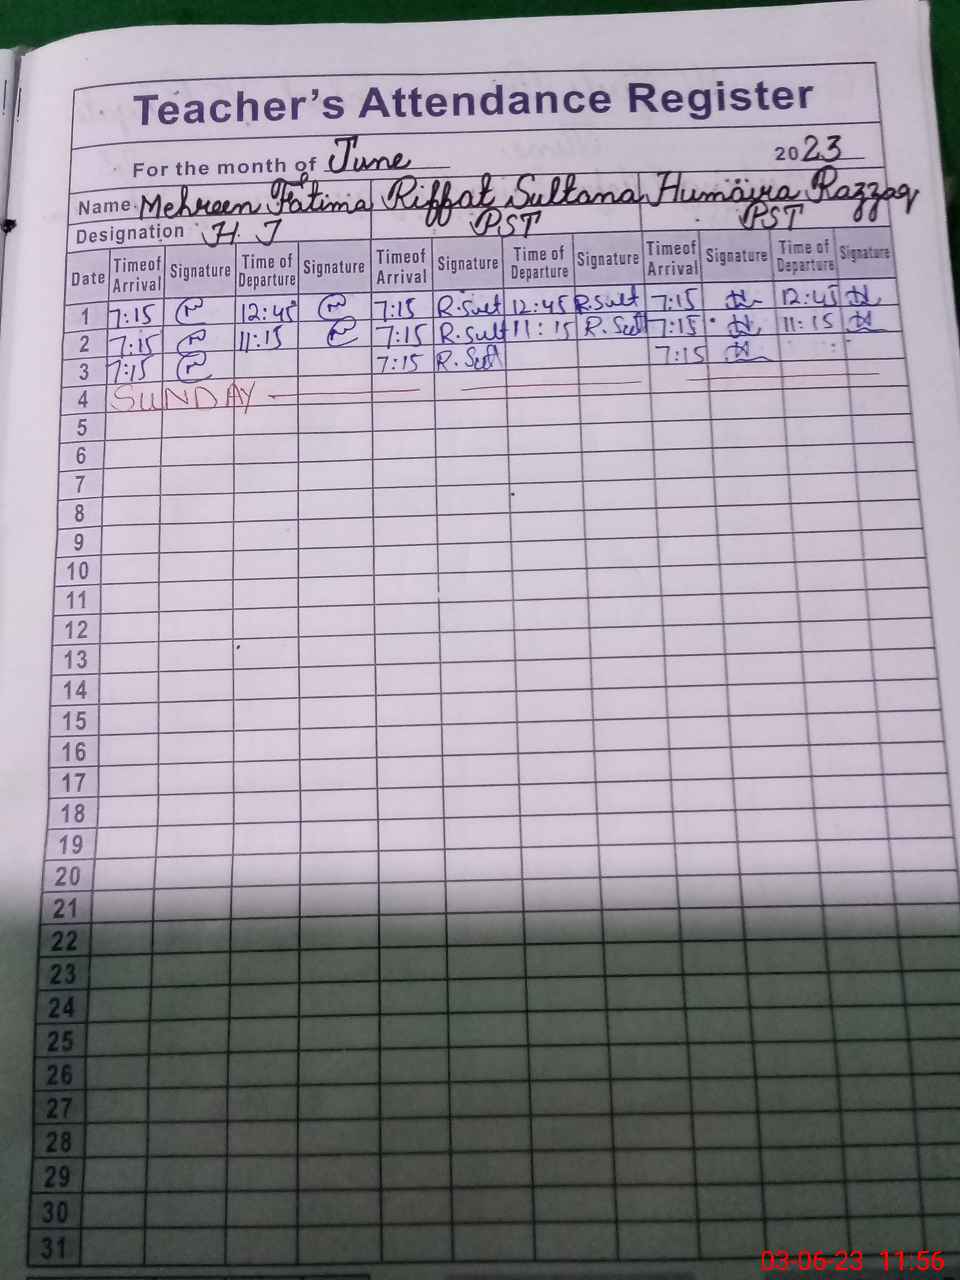 Teacher's Attendance Register
For the month of June 2023
Name Mehreen Fatima Riffat Sultana Humaira Razzaq
Designation H. T PST PST
Date Time of Arrival Signature Time of Departure Signature Time of Arrival Signature Time of Departure Signature Time of Arrival Signature Time of Departure Signature
1 7:15 12:45 7:15 R.Sult 12:45 R.Sult 7:15 12:45
2 7:15 11:15 7:15 R.Sult 11:15 R.Sult 7:15 11:15
3 7:15 7:15 R.Sult 7:15
4 SUNDAY
5
6
7
8
9
10
11
12
13
14
15
16
17
18
19
20
21
22
23
24
25
26
27
28
29
30
31
03-06-23 11:56